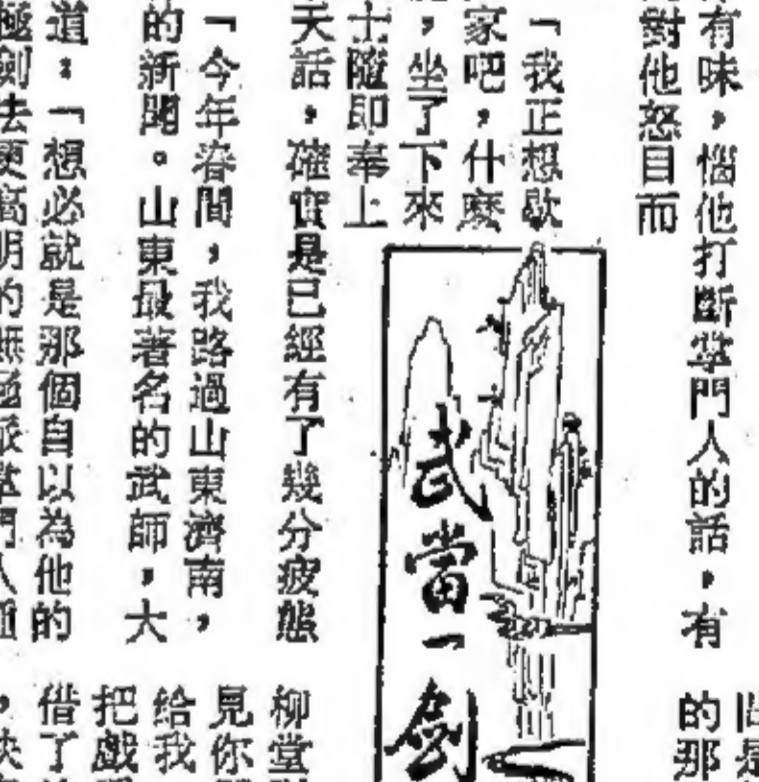 有味，惱他打斷掌門人的話，有
對他怒目而
「我正想歇
家吧，什麼
，坐了下來
士隨即奉上
天話，確實是已經有了幾分疲態
「今年春間，我路過山東濟南，
的新聞。山東最著名的武師，大
道：「想必就是那個自以為他的
極劍法更高明的無極派掌門人
武當一劍
是
的那
柳堂
見你
給我
把戲
借了
，